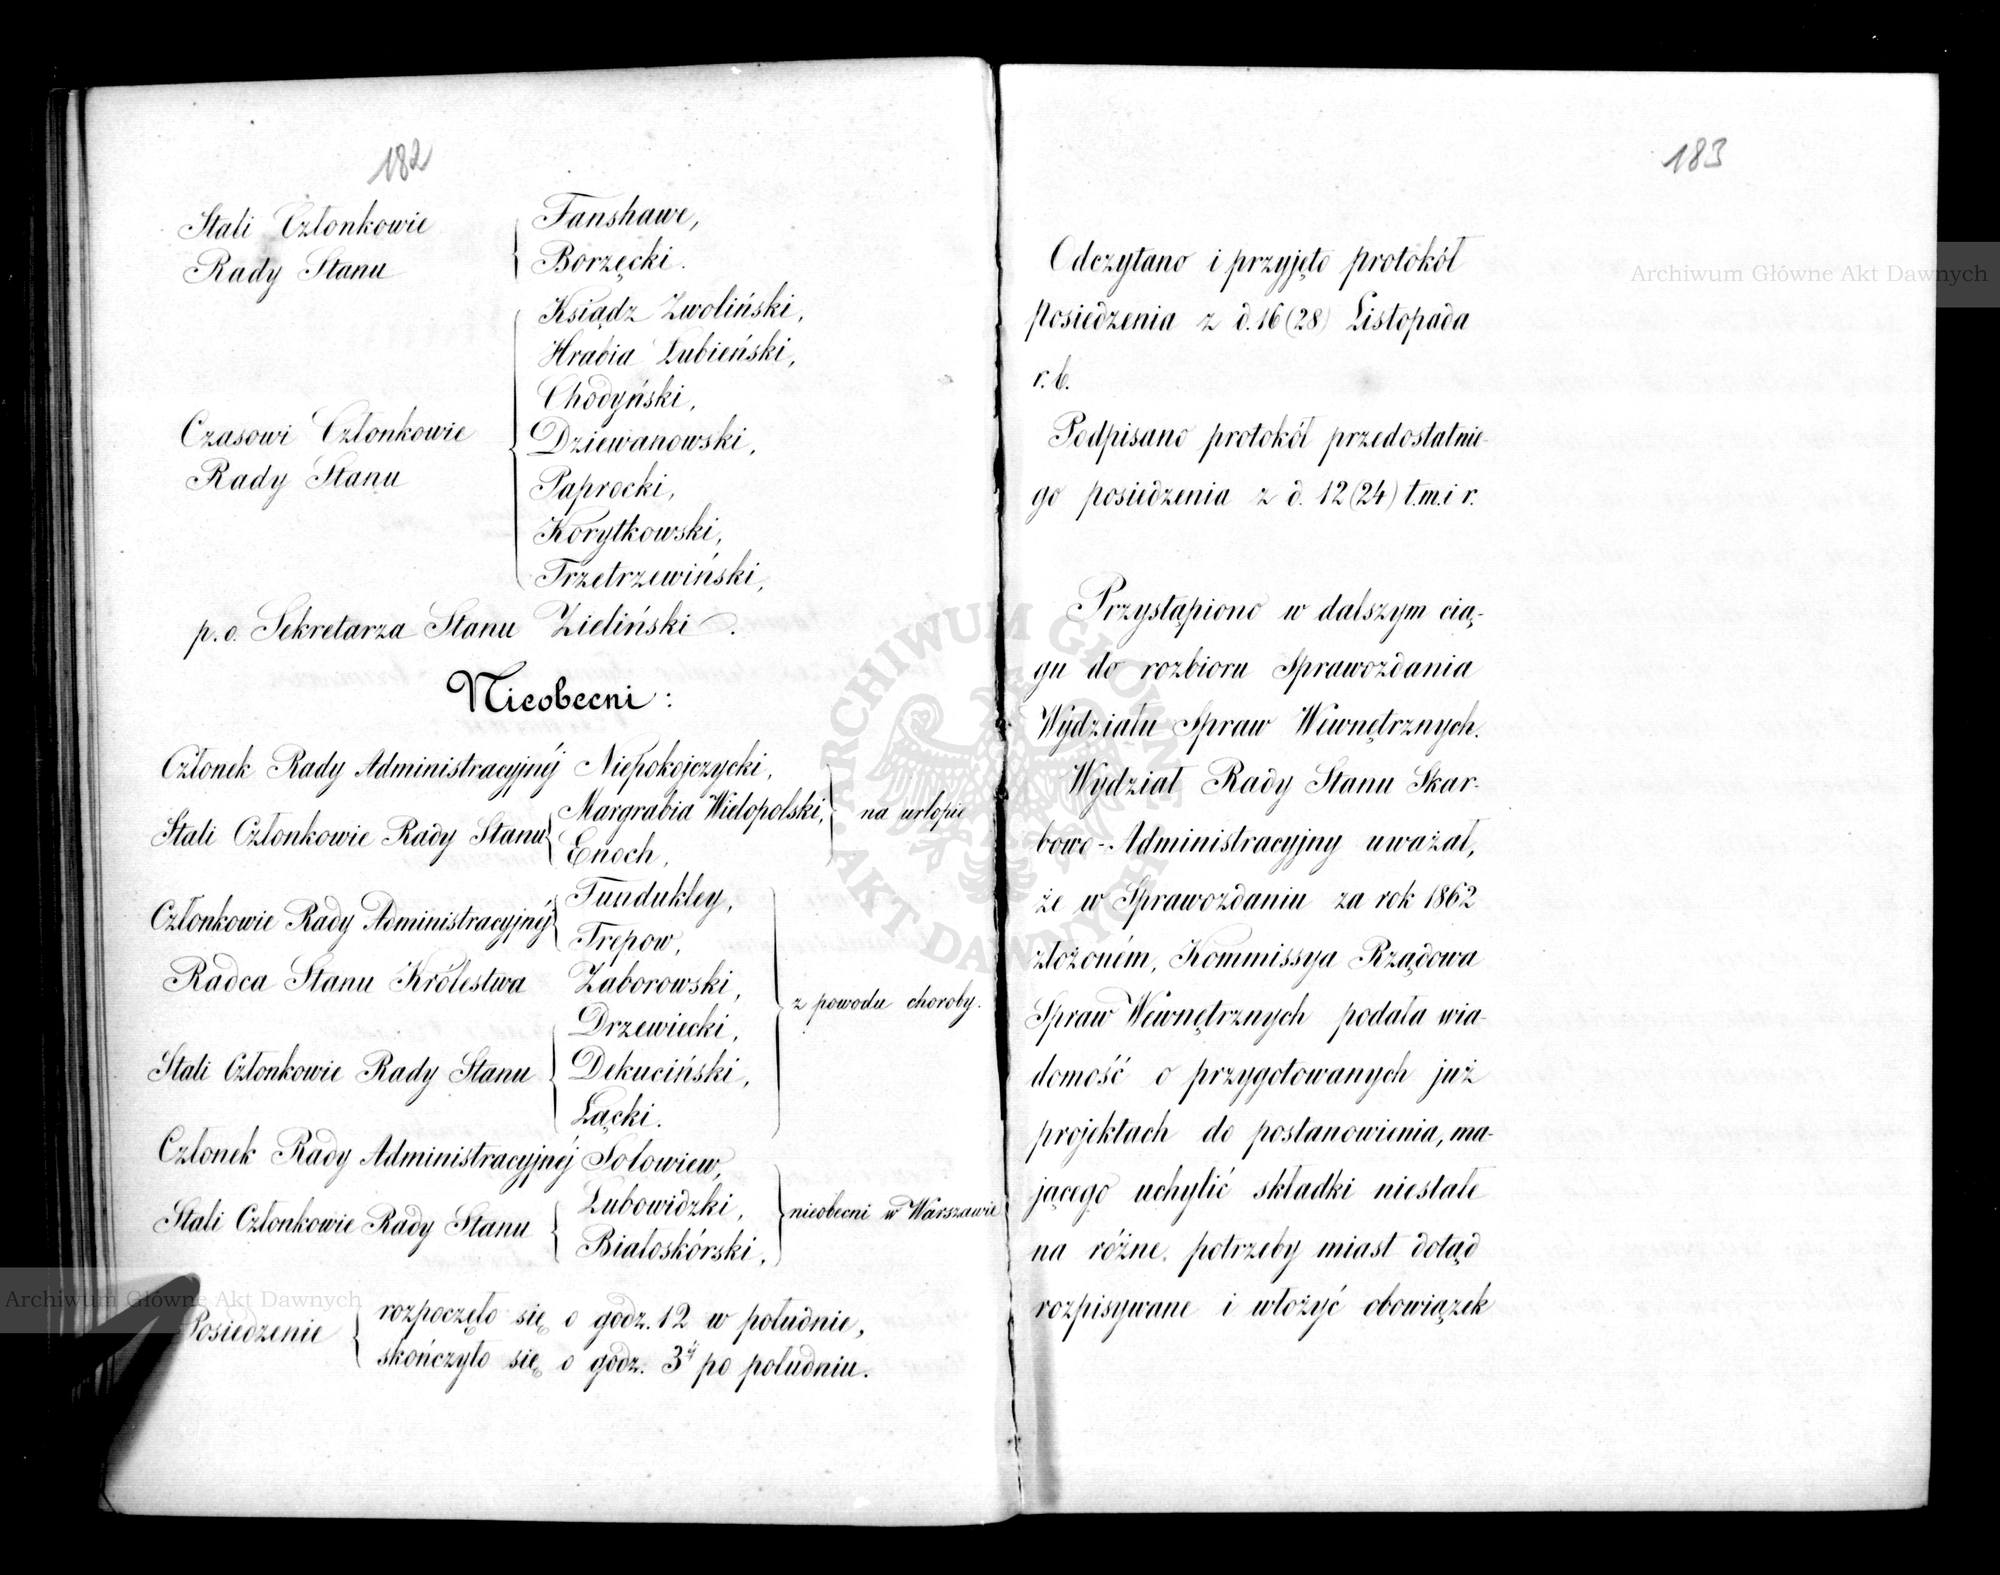 182
Stali Członkowie
Rady Stanu
Fanshawe,
Borzęcki.
Czasowi Członkowie
Rady Stanu
Ksiądz Zwoliński,
Hrabia Łubieński,
Chodyński,
Dziewanowski,
Paprocki,
Korytkowski,
Trzetrzewiński,
p. o. Sekretarza Stanu Zieliński.
Nieobecni:
Członek Rady Administracyjnéj Niepokojczycki,
Stali Członkowie Rady Stanu
Margrabia Wielopolski,
Enoch,
na urlopie
Członkowie Rady Administracyjnéj
Fundukley,
Trepow,
Radca Stanu Królestwa Zaborowski,
Stali Członkowie Rady Stanu
Drzewiecki,
Dekuciński,
Łącki.
z powodu choroby.
Członek Rady Administracyjnéj Sołowiew,
Stali Członkowie Rady Stanu
Lubowidzki,
Białoskórski,
nieobecni w Warszawie
Posiedzenie
rozpoczęło się o godz. 12 w południe,
skończyło się o godz. 3éj po południu.
183
Odczytano i przyjęto protokół
posiedzenia z d. 16 (28) Listopada
r. b.
Podpisano protokół przedostatnie-
go posiedzenia z d. 12 (24) t. m. i r.
Przystąpiono w dalszym cią-
gu do rozbioru Sprawozdania
Wydziału Spraw Wewnętrznych.
Wydział Rady Stanu Skar-
bowo-Administracyjny uważał,
że w Sprawozdaniu za rok 1862
złożoném, Kommissya Rządowa
Spraw Wewnętrznych podała wia-
domość o przygotowanych już
projektach do postanowienia, ma-
jącego uchylić składki niestałe
na różne potrzeby miast dotąd
rozpisywane i włożyć obowiązek
Archiwum Główne Akt Dawnych
Archiwum Główne Akt Dawnych
ARCHIWUM GŁÓWNE AKT DAWNYCH